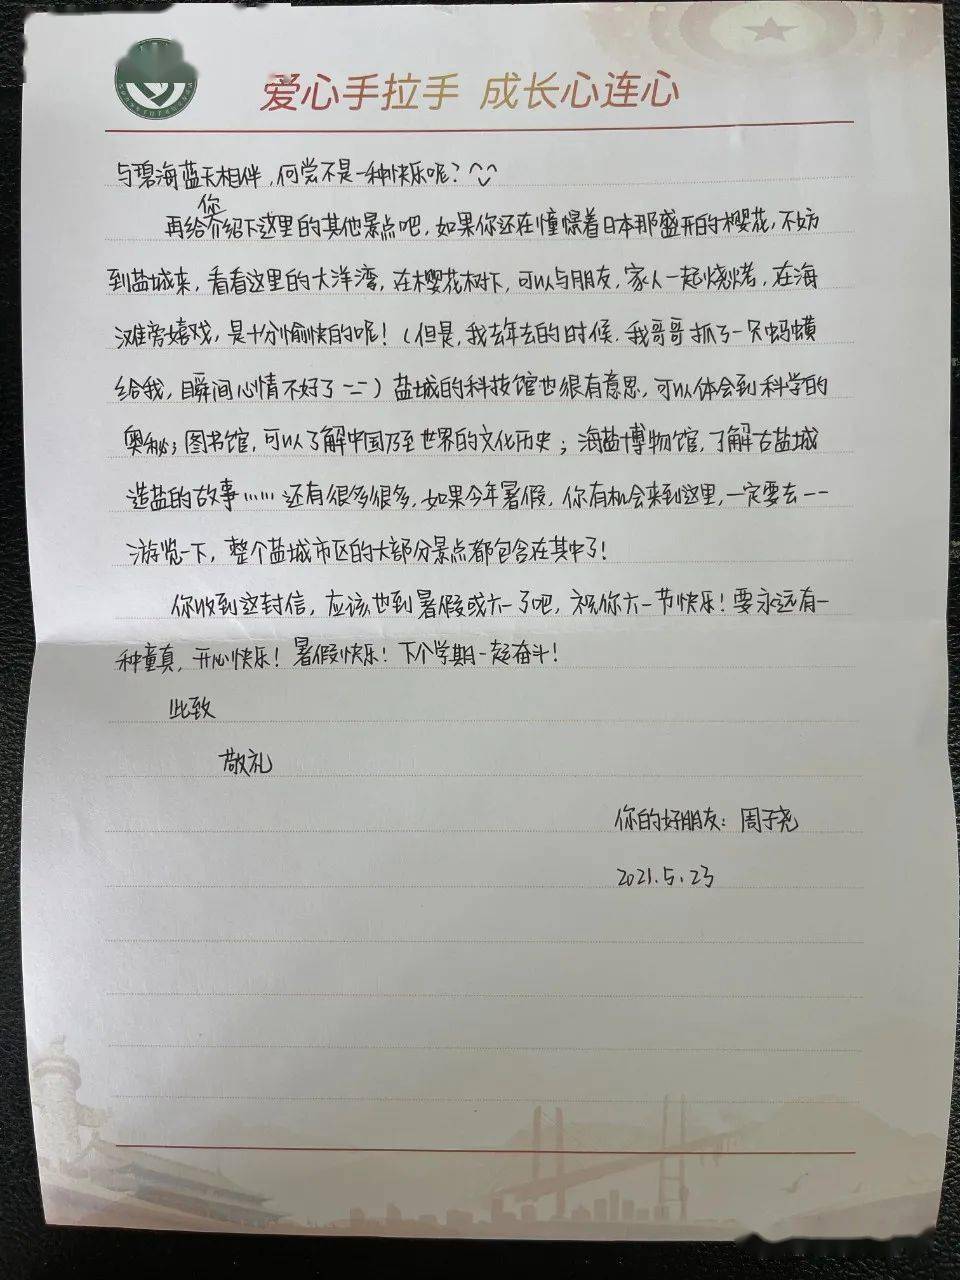 爱心手拉手 成长心连心
与碧海蓝天相伴,何尝不是一种快乐呢?
再给你介绍下这里的其他景点吧,如果你还在憧憬着日本那盛开的樱花,不妨
到盐城来,看看这里的大洋湾,在樱花树下,可以与朋友,家人一起烧烤,在海
滩旁嬉戏,是十分愉快的呢!(但是,我去年去的时候,我哥哥抓了一只蚂蟥
给我,瞬间心情不好了=_=)盐城的科技馆也很有意思,可以体会到科学的
奥秘;图书馆,可以了解中国乃至世界的文化历史;海盐博物馆,了解古盐城
造盐的故事……还有很多很多,如果今年暑假,你有机会来到这里,一定要去一一
游览一下,整个盐城市区的大部分景点都包含在其中了!
你收到这封信,应该也到暑假或六一了吧,祝你六一节快乐!要永远有一
种童真,开心快乐!暑假快乐!下个学期一起奋斗!
此致
敬礼
你的好朋友:周子尧
2021.5.23